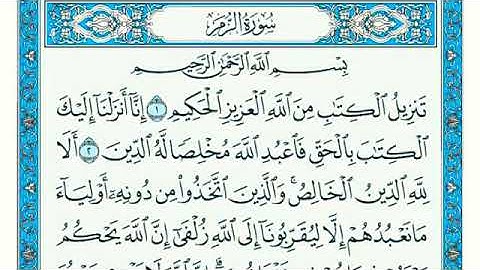 سُورَةُ الزُّمَرِ
بِسْمِ ٱللَّهِ ٱلرَّحْمَٰنِ ٱلرَّحِيمِ
تَنزِيلُ ٱلْكِتَٰبِ مِنَ ٱللَّهِ ٱلْعَزِيزِ ٱلْحَكِيمِ ١ إِنَّآ أَنزَلْنَآ إِلَيْكَ
ٱلْكِتَٰبَ بِٱلْحَقِّ فَٱعْبُدِ ٱللَّهَ مُخْلِصًا لَّهُ ٱلدِّينَ ٢ أَلَا
لِلَّهِ ٱلدِّينُ ٱلْخَالِصُ ۚ وَٱلَّذِينَ ٱتَّخَذُوا۟ مِن دُونِهِۦٓ أَوْلِيَآءَ
مَا نَعْبُدُهُمْ إِلَّا لِيُقَرِّبُونَآ إِلَى ٱللَّهِ زُلْفَىٰٓ إِنَّ ٱللَّهَ يَحْكُمُ